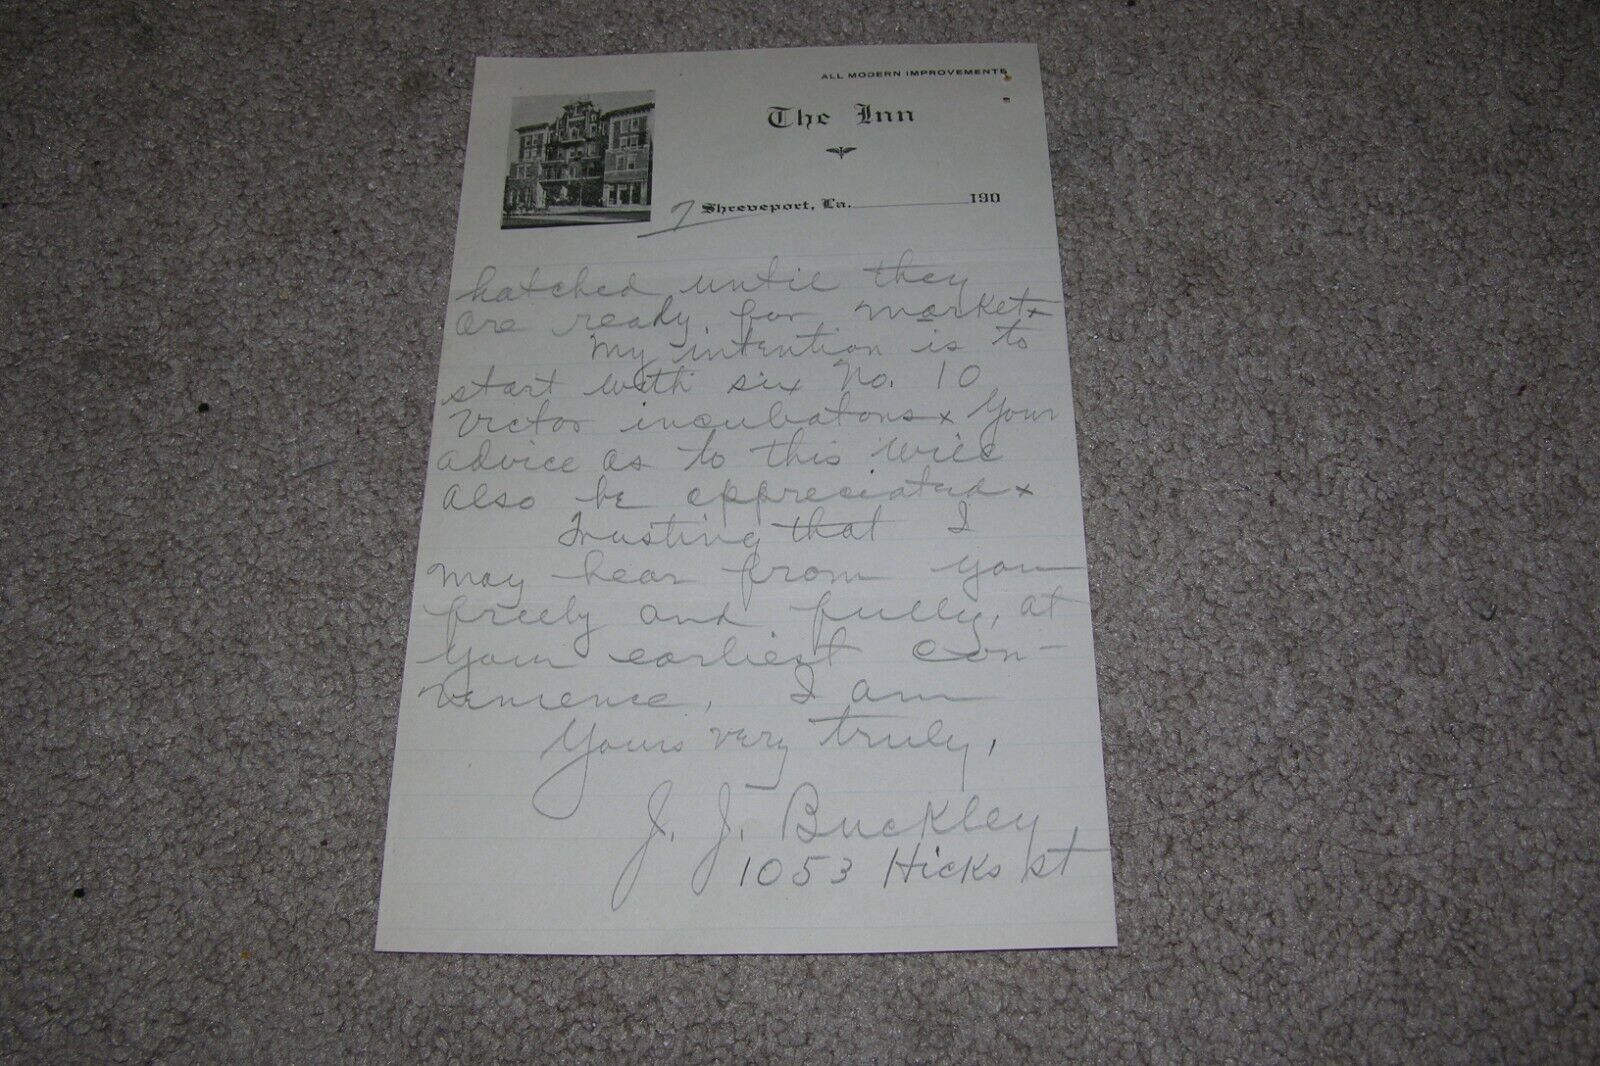 ALL MODERN IMPROVEMENTS
The Inn
7 Shreveport, La. 190
hatched until they
are ready for market x
My intention is to
start with six No. 10
Victor incubators x Your
advice as to this will
also be appreciated x
Trusting that I
may hear from you
freely and fully, at
your earliest con-
venience, I am
Yours very truly,
J. J. Buckley,
1053 Hicks St